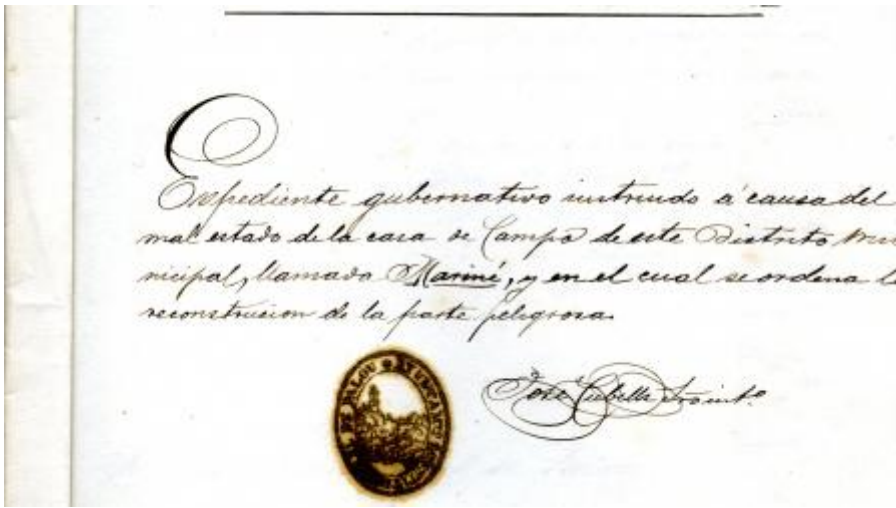 Expediente gubernativo instruido á causa del
mal estado de la casa de Campo de este Distrito mu
nicipal, llamada Mariné, y en el cual se ordena l
reconstruccion de la parte peligrosa.
José Cubells
DE PALOU AYUNTAMIENTO